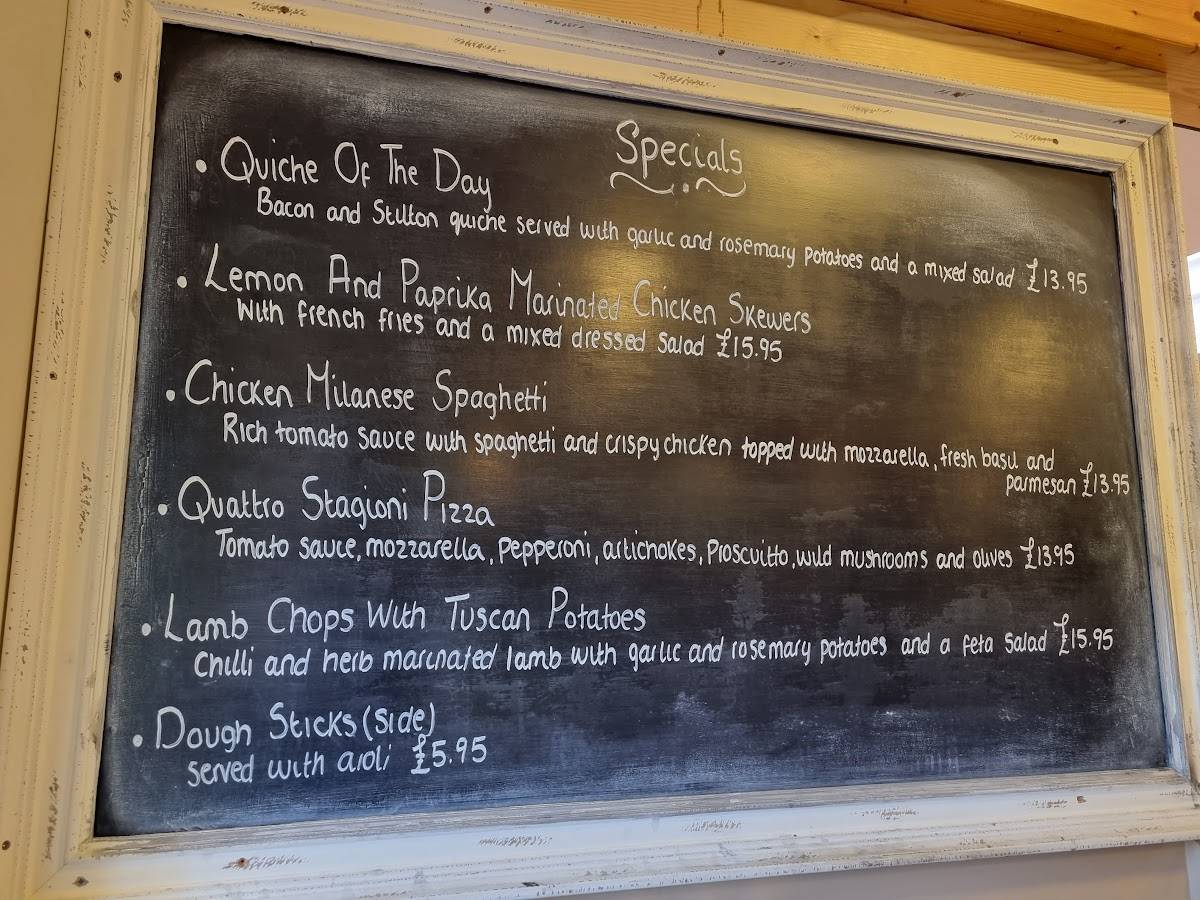 Specials
• Quiche Of The Day
Bacon and Stilton quiche served with garlic and rosemary potatoes and a mixed salad £13.95
• Lemon And Paprika Marinated Chicken Skewers
With french fries and a mixed dressed salad £15.95
• Chicken Milanese Spaghetti
Rich tomato sauce with spaghetti and crispy chicken topped with mozzarella, fresh basil and
parmesan £13.95
• Quattro Stagioni Pizza
Tomato sauce, mozzarella, pepperoni, artichokes, Proscuitto, wild mushrooms and olives £13.95
• Lamb Chops With Tuscan Potatoes
Chilli and herb marinated lamb with garlic and rosemary potatoes and a feta salad £15.95
• Dough Sticks (side)
served with aioli £5.95